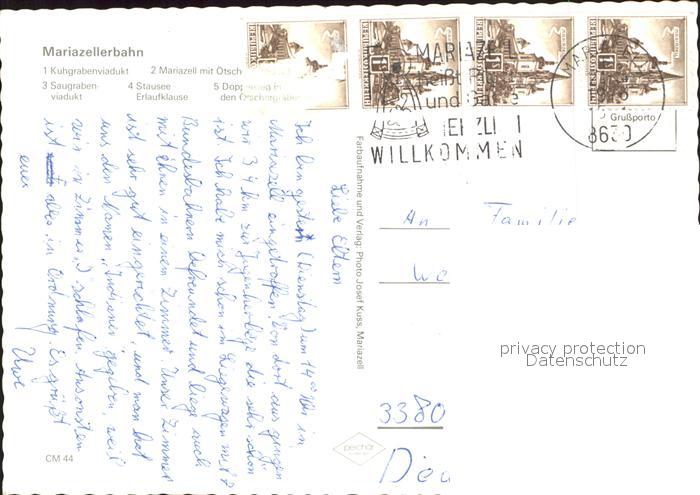 Mariazellerbahn
1 Kuhgrabenviadukt 2 Mariazell mit Ötsch
3 Saugraben- 4 Stausee 5 Doppel
viadukt Erlaufklause den Ötschergräben
MARIAZELL
heißt
und
HERZLI
WILLKOMMEN
8630
Grußporto
Liebe Eltern
Ich bin gestern (Dienstag) um 14°° Uhr in
Mariazell eingetroffen. Von dort aus gingen
wir 3-4 km zur Jugendherberge die sehr schön
ist. Ich habe mich schon im Liegewagen mit 2
Bundesbahnern befreundet und liege auch
mit ihnen in einem Zimmer. Unser Zimmer
ist sehr gut eingerichtet, und man hat
uns den Namen "Indianer" gegeben, weil
wir in Zimmer 1 schlafen. Ansonsten
ist alles in Ordnung. Es grüßt
euer Uwe
Farbaufnahme und Verlag: Photo Josef Kuss, Mariazell
An Familie
We
3380
CM 44
privacy protection
Datenschutz